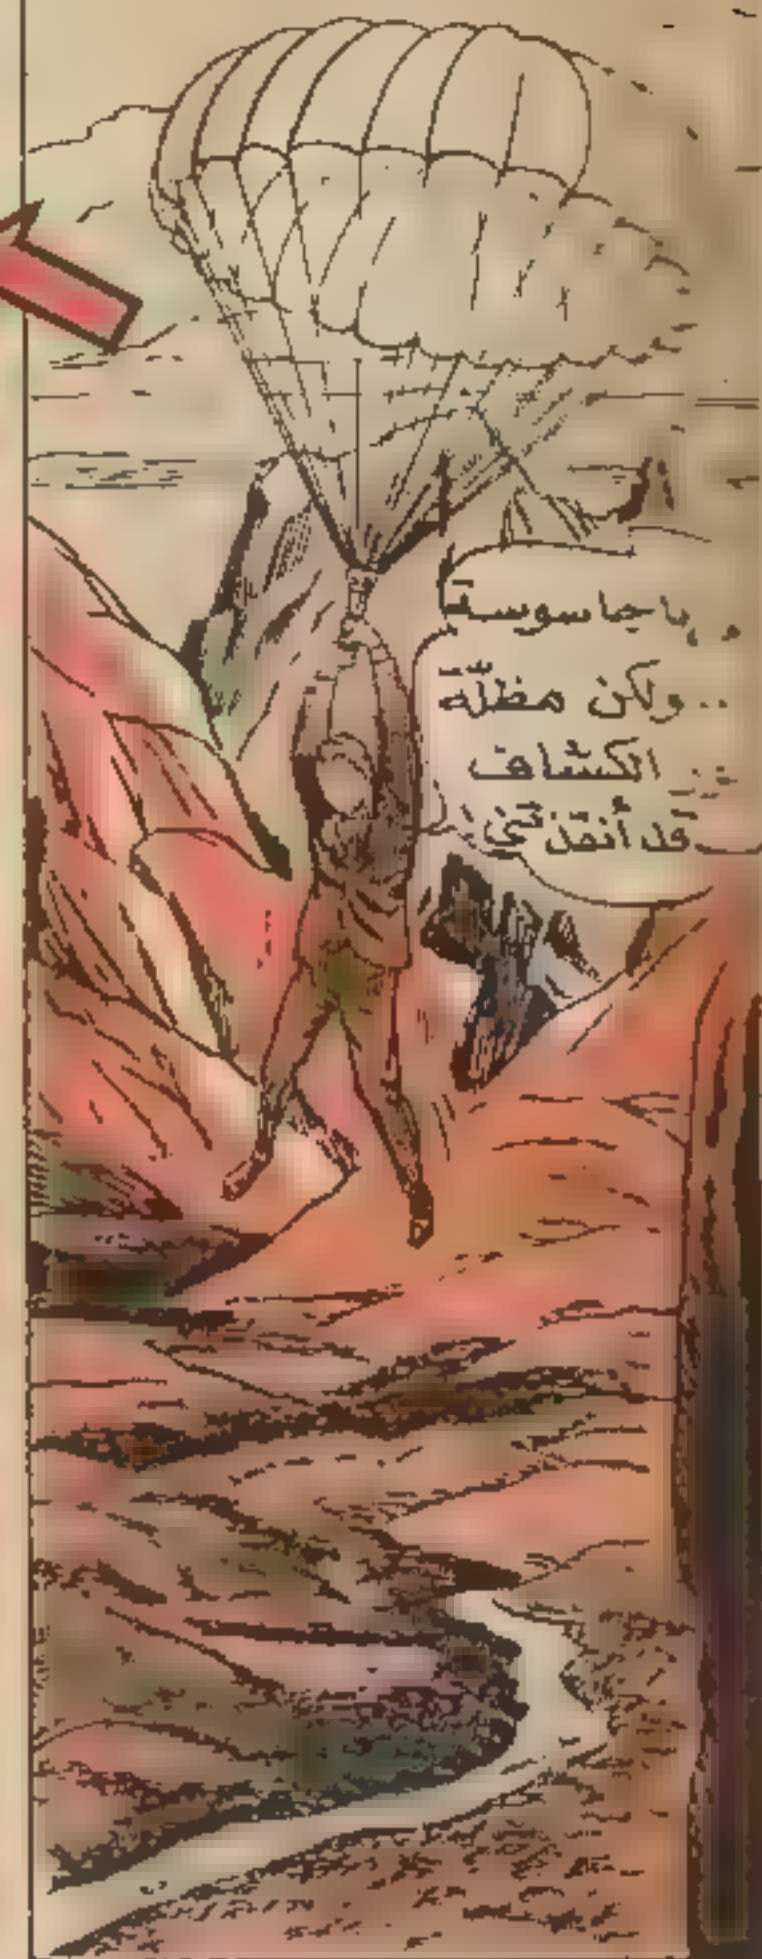 يا جاسوسة
..ولكن مظلّة
الكشاف
قد أنقذتني!